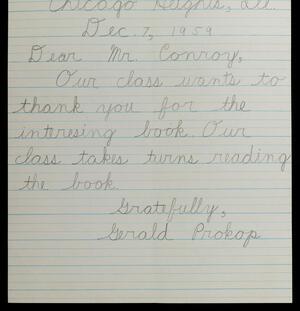 Chicago Heights, Ill.
Dec. 7, 1959
Dear Mr. Conroy,
Our class wants to
thank you for the
interesing book. Our
class takes turns reading
the book.
Gratefully,
Gerald Prokop